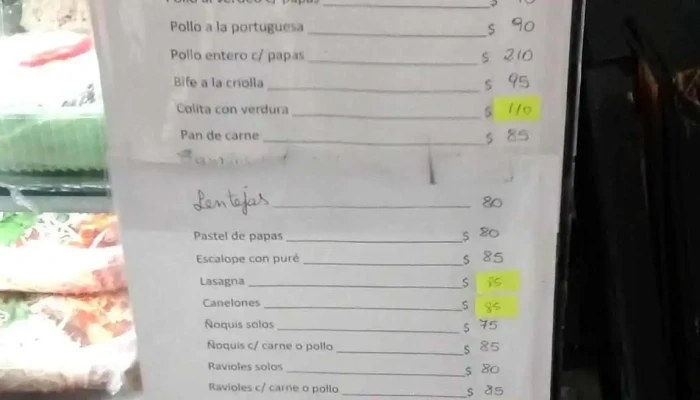 Pollo al verdeo c/ papas $
Pollo a la portuguesa $ 90
Pollo entero c/ papas $ 210
Bife a la criolla $ 95
Colita con verdura $ 110
Pan de carne $ 85
Lentejas 80
Pastel de papas $ 80
Escalope con puré $ 85
Lasagna $ 85
Canelones $ 85
Ñoquis solos $ 75
Ñoquis c/ carne o pollo $ 85
Ravioles solos $ 80
Ravioles c/ carne o pollo $ 85